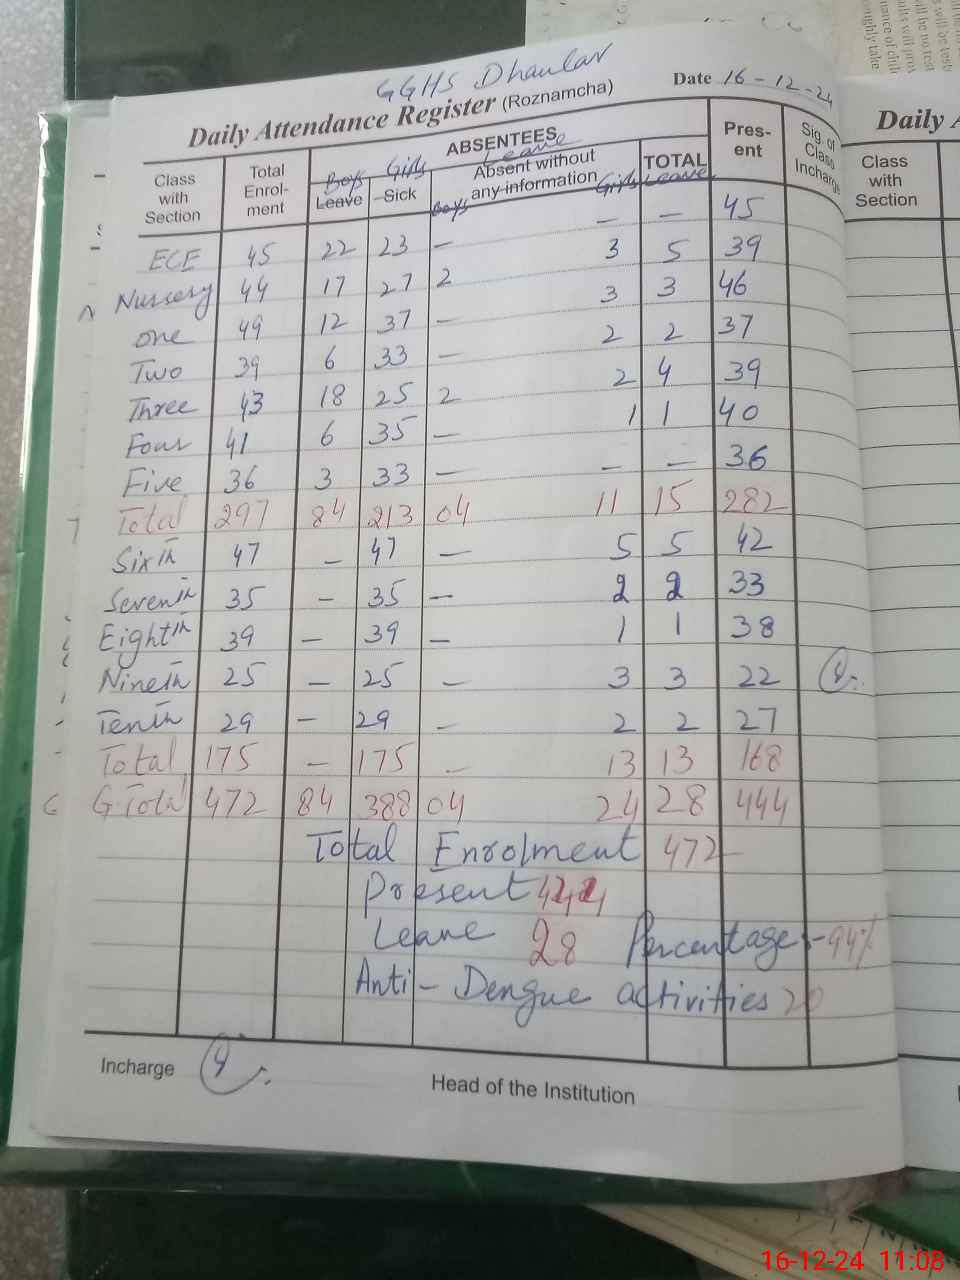 GGHS Dhaular
Date 16-12-24
Daily Attendance Register (Roznamcha)
Class with Section | Total Enrol-ment | ABSENTEES | Pres-ent | Sig. of Class Incharge
Boys Leave | Girls Sick | Leave Absent without any information Boys Girls | TOTAL Leave
ECE 45 22 23 – – – 45
Nursery 44 17 27 2 3 5 39
One 49 12 37 – 3 3 46
Two 39 6 33 – 2 2 37
Three 43 18 25 2 2 4 39
Four 41 6 35 – 1 1 40
Five 36 3 33 – – – 36
Total 297 84 213 04 11 15 282
Sixth 47 – 47 – 5 5 42
Seventh 35 – 35 – 2 2 33
Eighth 39 – 39 – 1 1 38
Nineth 25 – 25 – 3 3 22
Tenth 29 – 29 – 2 2 27
Total 175 – 175 – 13 13 168
G.Total 472 84 388 04 24 28 444
Total Enrolment 472
Present 444
Leave 28 Percentage:-94%
Anti-Dengue activities 20
Incharge
Head of the Institution
Daily A
Class with Section
16-12-24 11:08